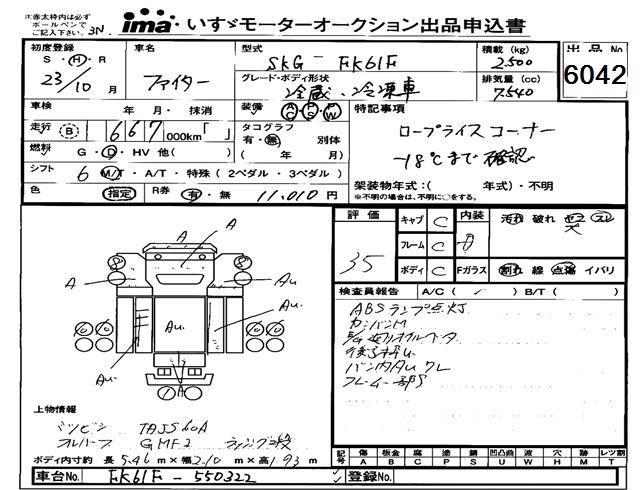 ※赤太枠内は必ず
ボールペンで
ご記入下さい。3N.
ima いすゞモーターオークション出品申込書
初度登録 車名 型式 積載(kg) 出品No
S・H・R 23/10月 ファイター SKG-FK61F 2,500 6042
グレード・ボディ形状 排気量(cc)
冷蔵、冷凍車 7,540
車検 年 月・ 抹消 装備 AC・PS・PW 特記事項
走行 B 667,000km「 」 タコグラフ ロープライスコーナー
有・無 別体
燃料 G・D・HV 他( ) ( 年 月) -18℃まで確認
シフト 6 M/T・A/T・特殊(2ペダル・3ペダル)
架装物年式:( 年式)・不明
色 指定 R券 有・無 11,010円 ※不明の場合は、不明に○をする。
評価 35
キャブ C 内装 汚れ 破れ コゲ スレ
フレーム C
ボディ C Fガラス 割れ 線 点傷 イバリ
検査員報告 A/C( ) B/T( )
ABSランプ点灯
フレーム一部S
A A A Au Au. Au. Au. A
上物情報
ミツビシ TAJS60A
GMF2
ボディ内寸寸 長5.46m×幅2.10m×高1.93m
記号 傷A 板金B 腐C 塗P 錆S 凹凸曲U 波W 穴H 跡M レツ割T
車台No. FK61F-550322 登録No.